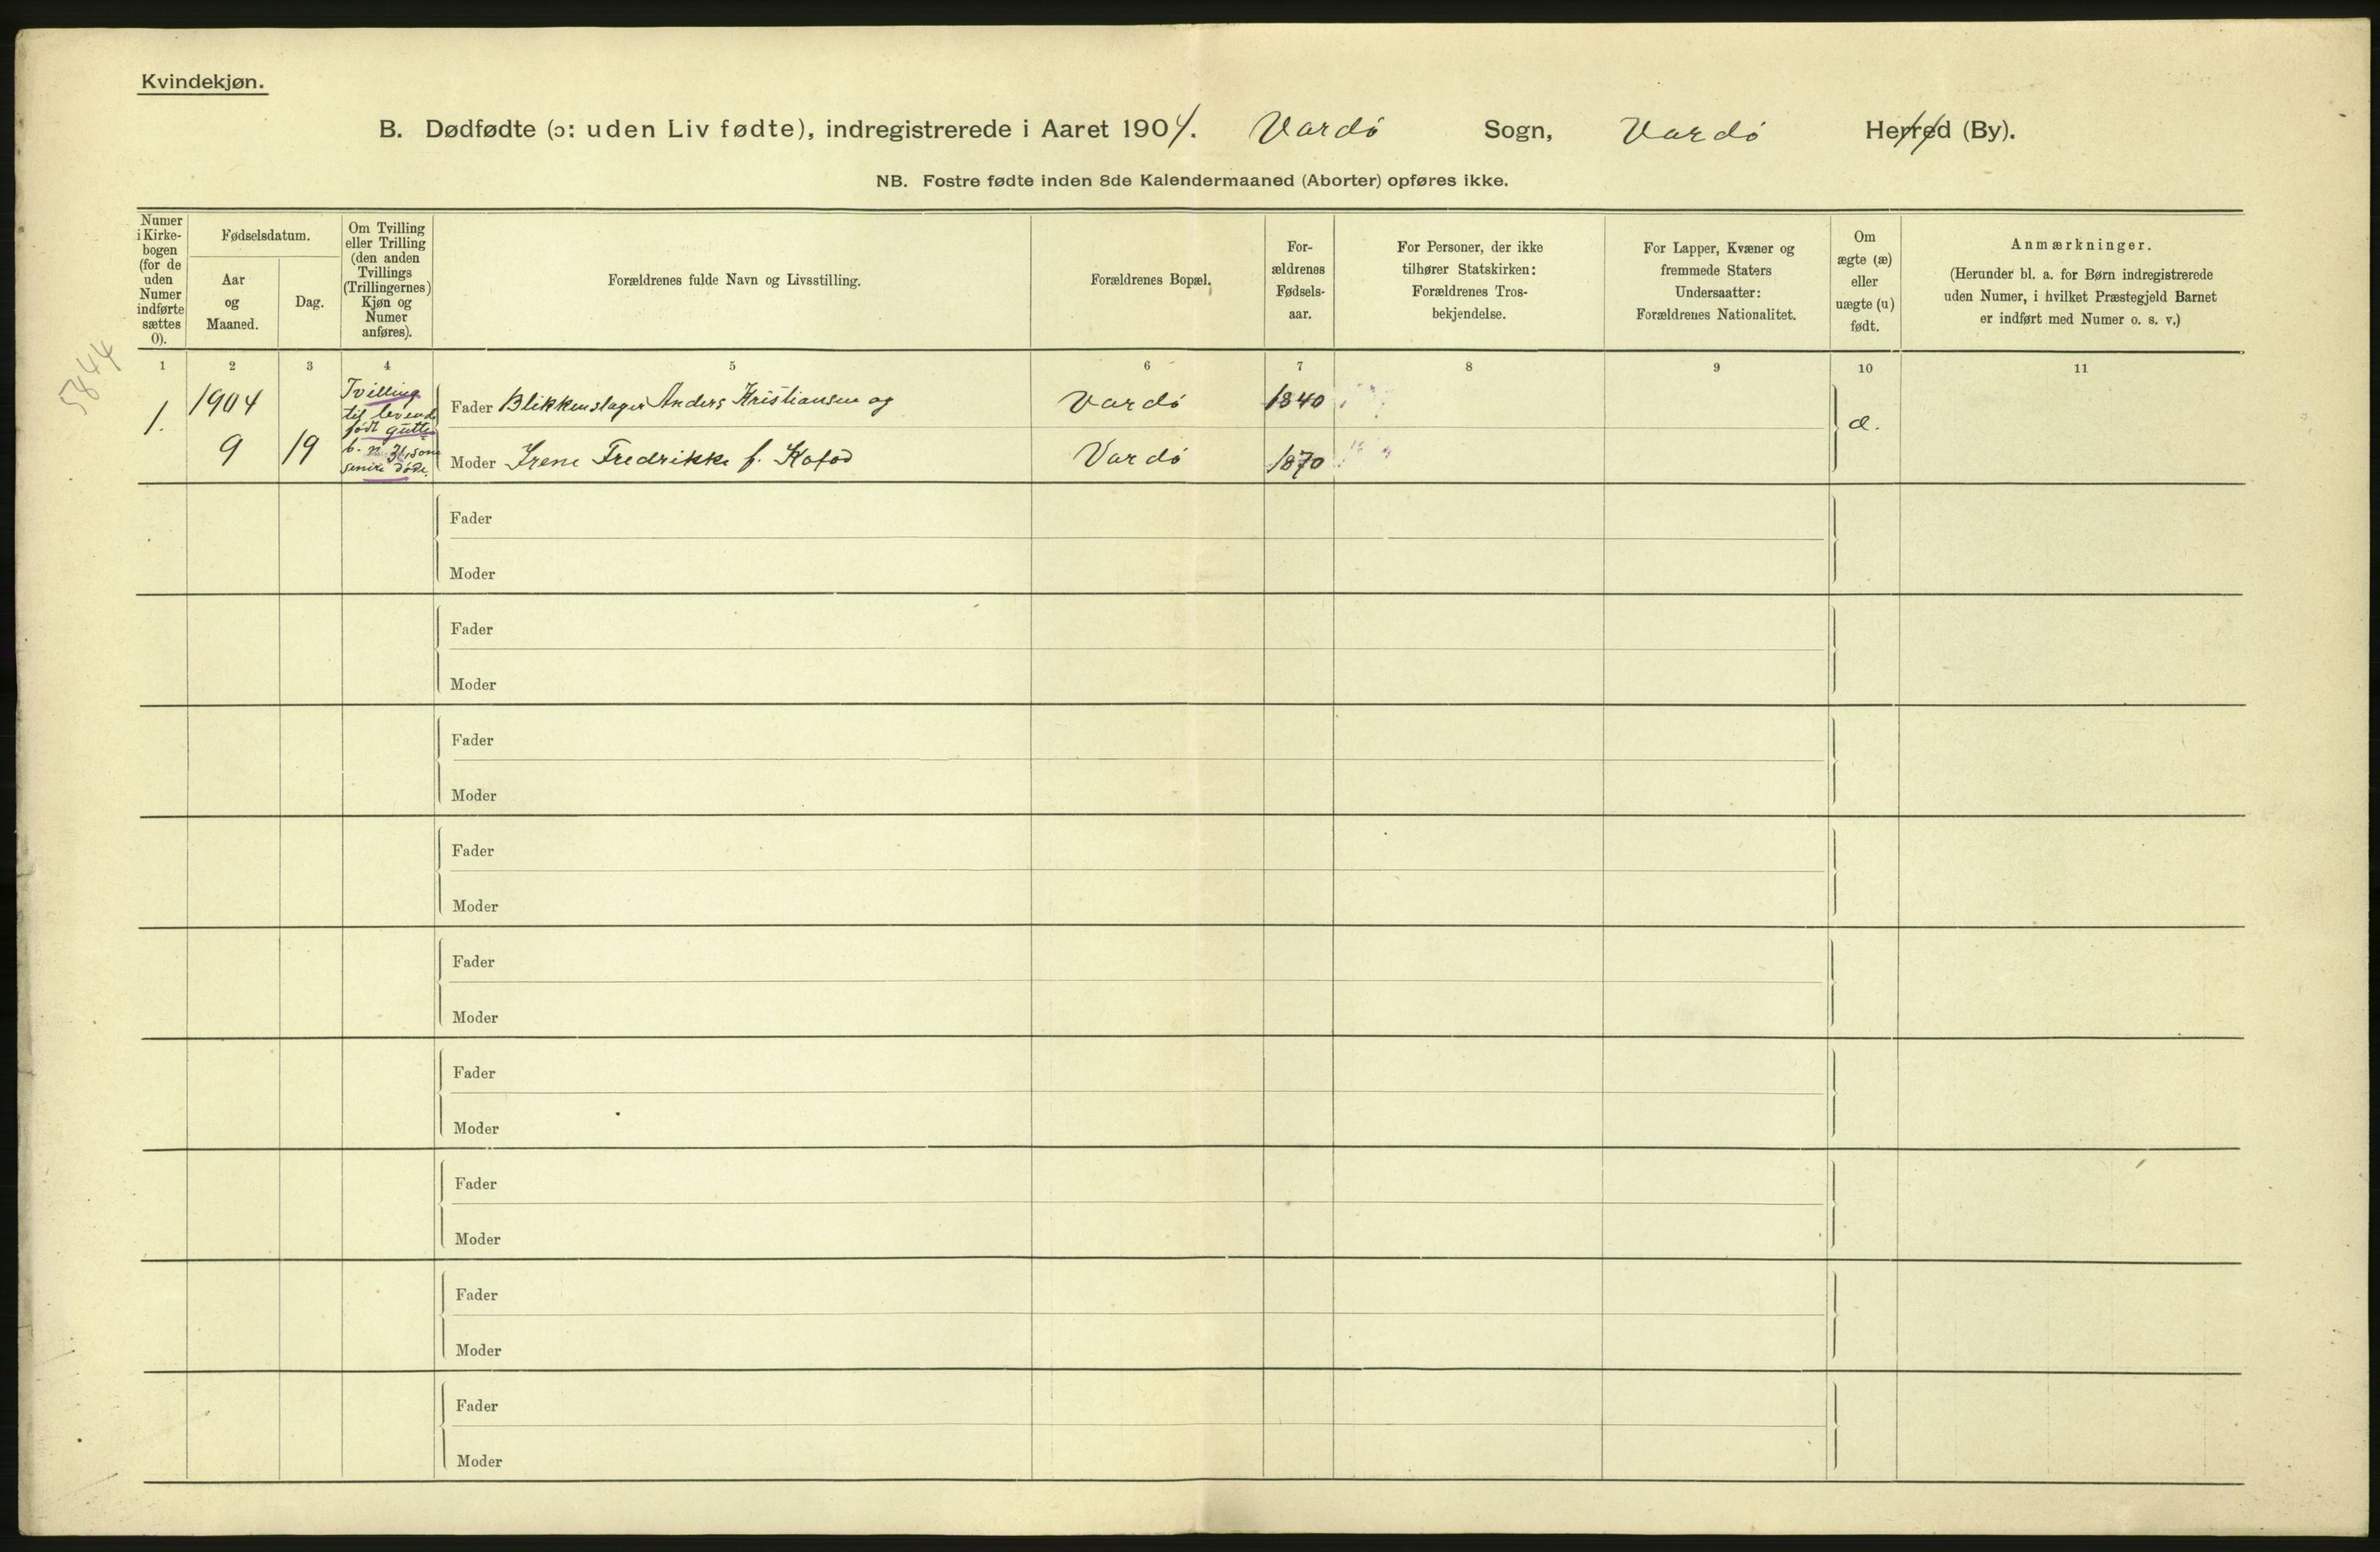 Kvindekjøn.
B. Dødfødte (ɔ: uden Liv fødte), indregistrerede i Aaret 1904. Vardö Sogn, Vardö Herred (By).
NB. Fostre fødte inden 8de Kalendermaaned (Aborter) opføres ikke.
Numer
i Kirke-
bogen
(for de
uden
Numer
indførte
sættes
0).
Fødselsdatum.
Aar
og
Maaned.
Dag.
Om Tvilling
eller Trilling
(den anden
Tvillings
(Trillingernes)
Kjøn og
Numer
anføres).
Forældrenes fulde Navn og Livsstilling.
Forældrenes Bopæl.
For-
ældrenes
Fødsels-
aar.
For Personer, der ikke
tilhører Statskirken:
Forældrenes Tros-
bekjendelse.
For Lapper, Kvæner og
fremmede Staters
Undersaatter:
Forældrenes Nationalitet.
Om
ægte (æ)
eller
uægte (u)
født.
Anmærkninger.
(Herunder bl. a. for Børn indregistrerede
uden Numer, i hvilket Præstegjeld Barnet
er indført med Numer o. s. v.)
5844
1 2 3 4 5 6 7 8 9 10 11
1.
1904
9 19
Tvilling
til levende
født gutte
senere døde.
Fader Blikkenslager Anders Kristiansen og Vardö 1840
æ.
Moder Irene Fredrikke f. Kofod Vardö 1870
Fader
Moder
Fader
Moder
Fader
Moder
Fader
Moder
Fader
Moder
Fader
Moder
Fader
Moder
Fader
Moder
Fader
Moder